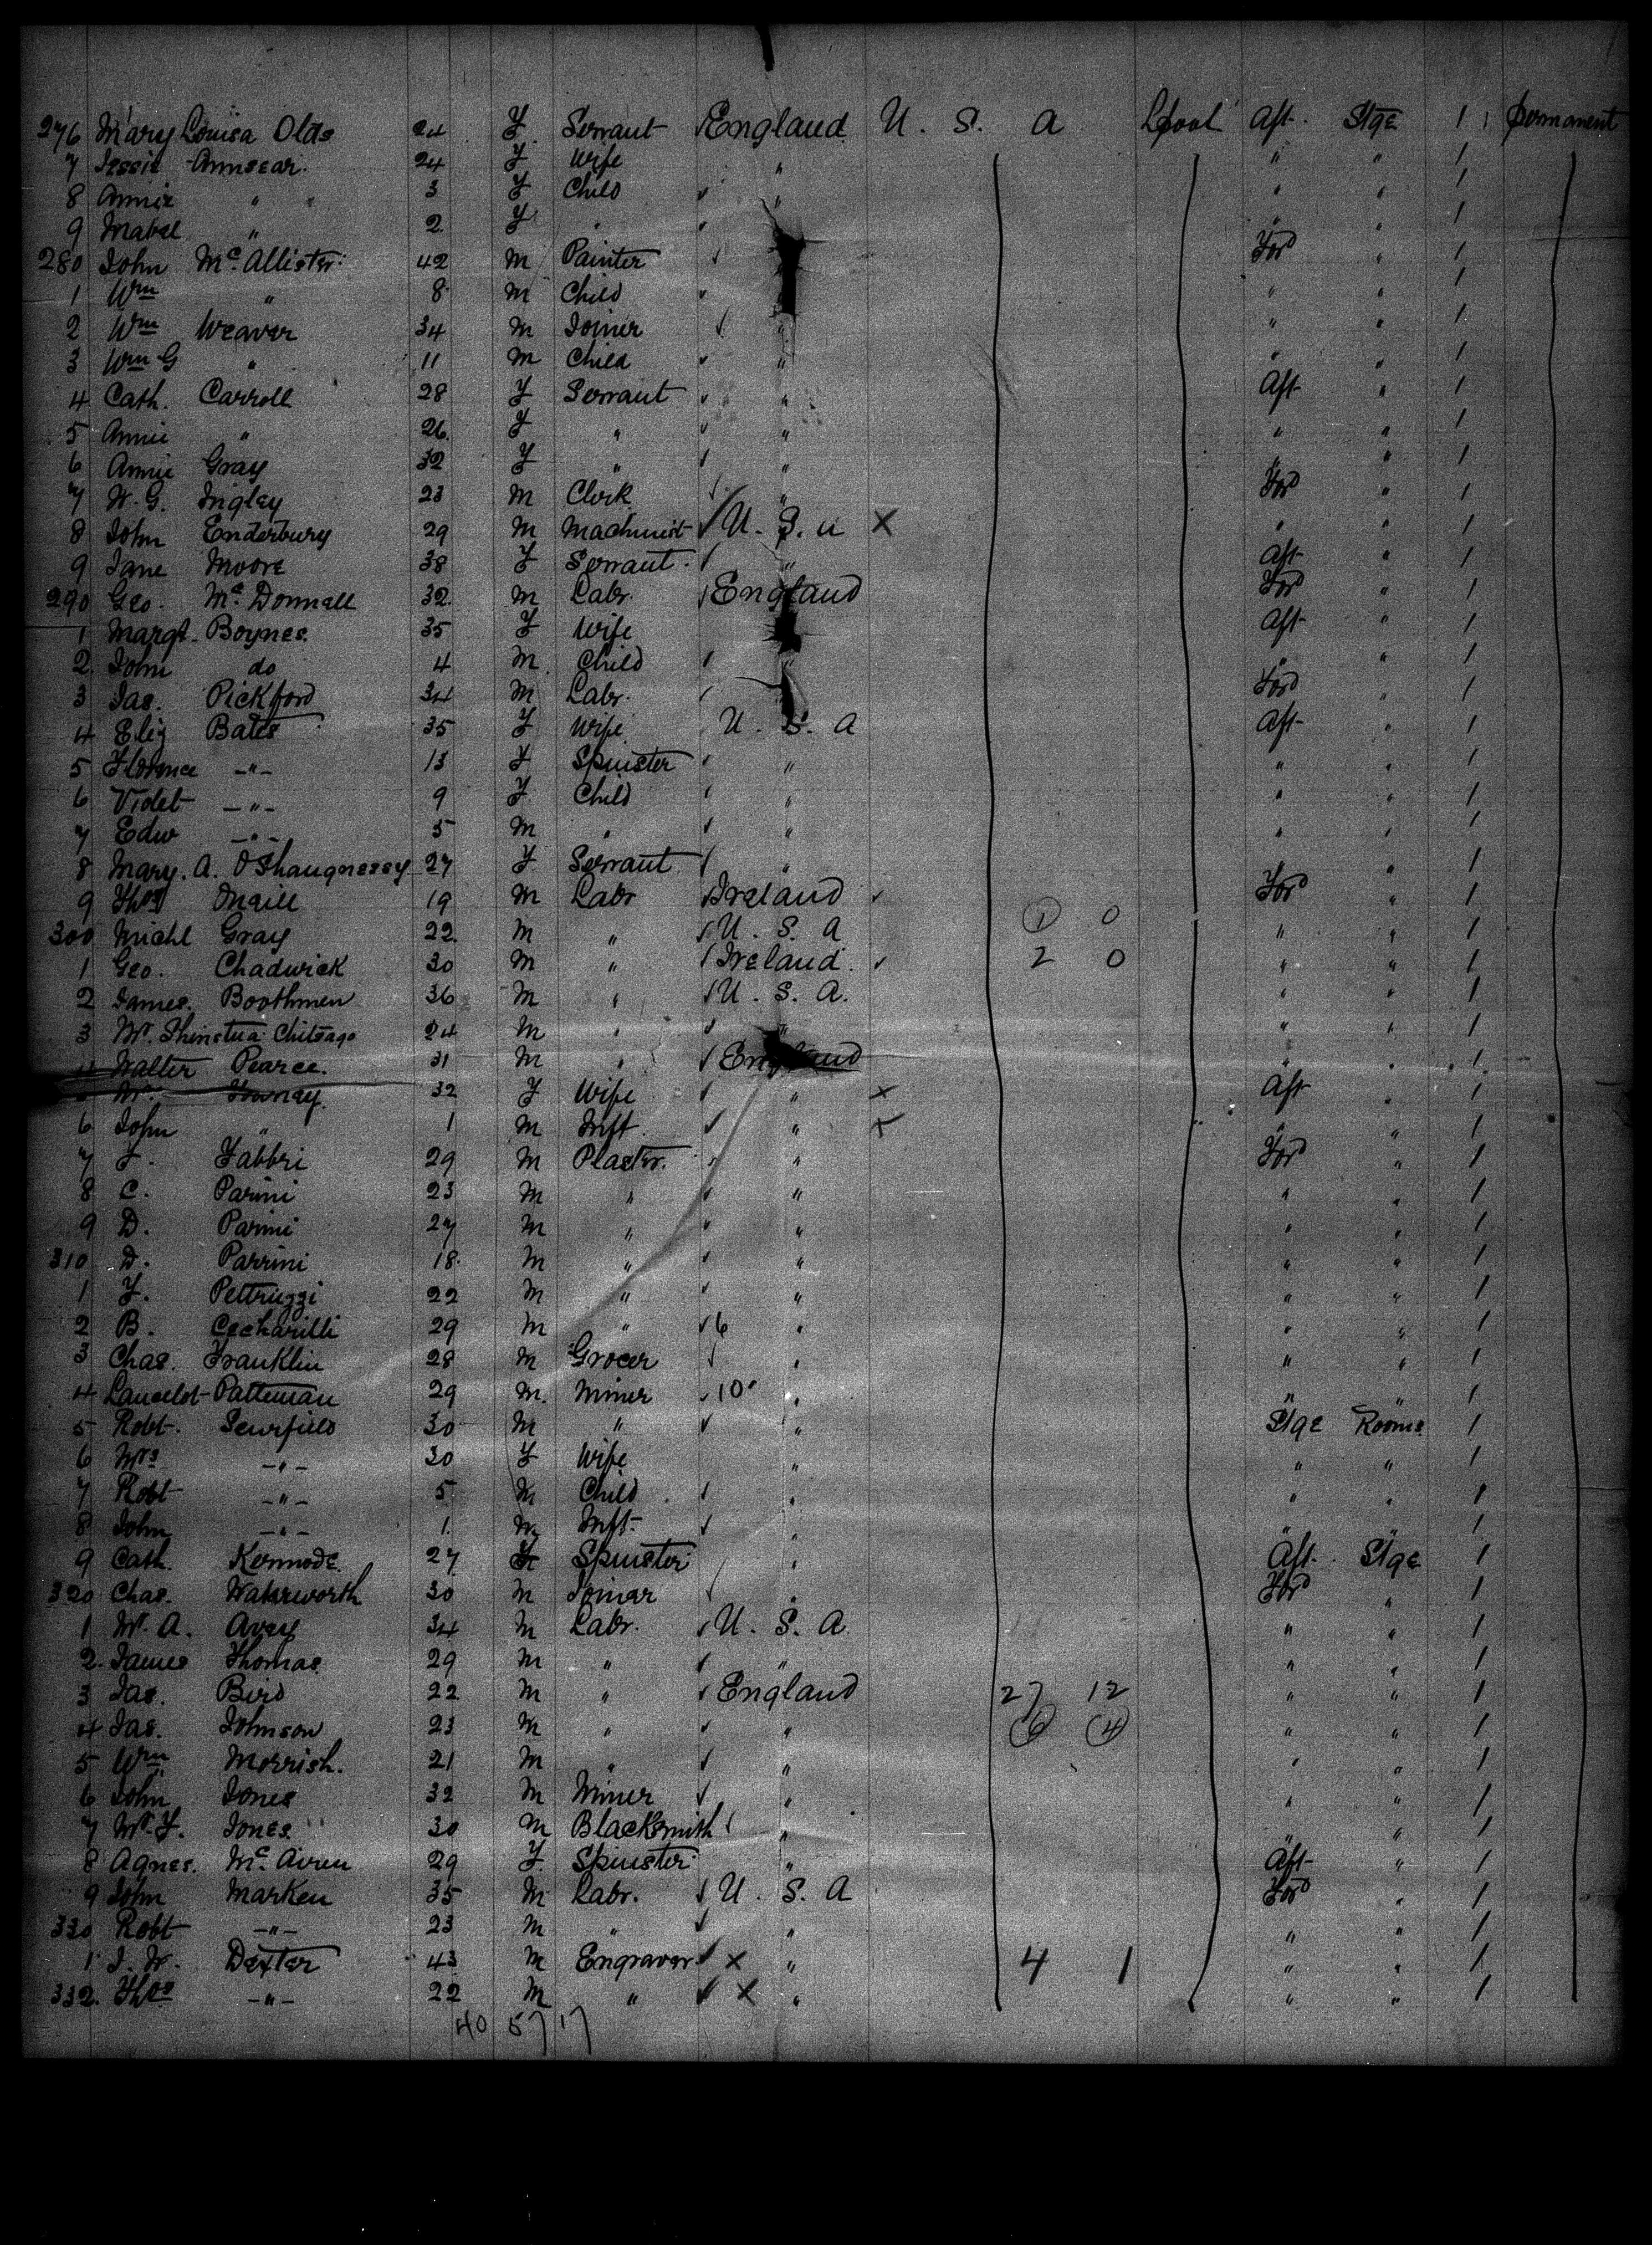 276 Mary Louisa Olds 24 F Servant England U. S. A L'pool Aft. Stge 1 1 permanent
7 Jessie 24 F Wife " " " 1
8 Annie " 3 F Child " " " 1
9 Mabel " 2 F " " " " 1
280 John McAllister 42 M Painter Ford " 1
1 Wm " 8 M Child " " 1
2 Wm Weaver 34 M Joiner " " " 1
3 Wm G " 11 M Child " " " 1
4 Cath. Carroll 28 F Servant " Aft " 1
5 Annie " 26 F " " " " 1
6 Annie Gray 32 F " " " " 1
7 W. G. Ingley 23 M Clerk " Ford " 1
8 John Enderbury 29 M Machinist U. S. a X " " 1
9 Jane Moore 38 F Servant " Aft " 1
290 Geo. McDonnall 32 M Labr. England Ford " 1
1 Margt. Boynes 35 F Wife Aft " 1
2 John do 4 M Child " " " 1
3 Jas. Pickford 34 M Labr. Ford " 1
4 Eliz Bates 35 F Wife U. S. A Aft " 1
5 Florence -"- 13 F Spinster " " " 1
6 Violet -"- 9 F Child " " " 1
7 Edw -"- 5 M " " " " 1
8 Mary. A. O'Shaugnessy 27 F Servant " " 1
9 Thos 19 M Labr Ireland Ford " 1
300 Michl Gray 22 M " U. S. A 1 0 " " 1
1 Geo. Chadwick 30 M " Ireland 2 0 " " 1
2 James. Boothmen 36 M " U. S. A. " " 1
3 24 M " " " " 1
4 Walter Pearce. 31 M " England " " 1
32 F Wife " X Aft " 1
6 John " 1 M Inft. " X " " 1
7 F. Fabbri 29 M Plastr. " Ford " 1
8 C. Parini 23 M " " " " 1
9 D. Parini 27 M " " " " 1
310 D. Parrini 18 M " " " " 1
1 F. Pettruzzi 22 M " " " " 1
2 B. Cecharilli 29 M " 6 " " " 1
3 Chas. Franklin 28 M Grocer " " " 1
4 Lancelot Patteman 29 M. Miner 10 " " " 1
5 Robt. 30 M " " Stge Rooms 1
6 Mrs -"- 30 F Wife " " " 1
7 Robt -"- 5 M Child " " " 1
8 John -"- 1 M Inft. " " " 1
9 Cath. Kermode. 27 F Spinster " Aft. Stge 1
320 Chas. Waterworth 30 M Joiner " Ford " 1
1 W. A. Avey 34 M Labr. U. S. A. " " 1
2 James Thomas 29 M " " " " 1
3 Jas. Bird 22 M " England 27 12 " " 1
4 Jas. Johnson 23 M " " 6 4 " " 1
5 Wm. Morrish. 21 M " " " " 1
6 John Jones 32 M Miner " " " 1
7 W. F. Jones 30 M Blacksmith " " " 1
8 Agnes. 29 F. Spinster " Aft " 1
9 John Marken 35 M Labr. U. S. A Ford " 1
330 Robt -"- 23 M " " " " 1
1 J. W. Dexter 43 M Engraver X " 4 1 " " 1
332. Thos -"- 22 M " X " " " 1
40 57 17